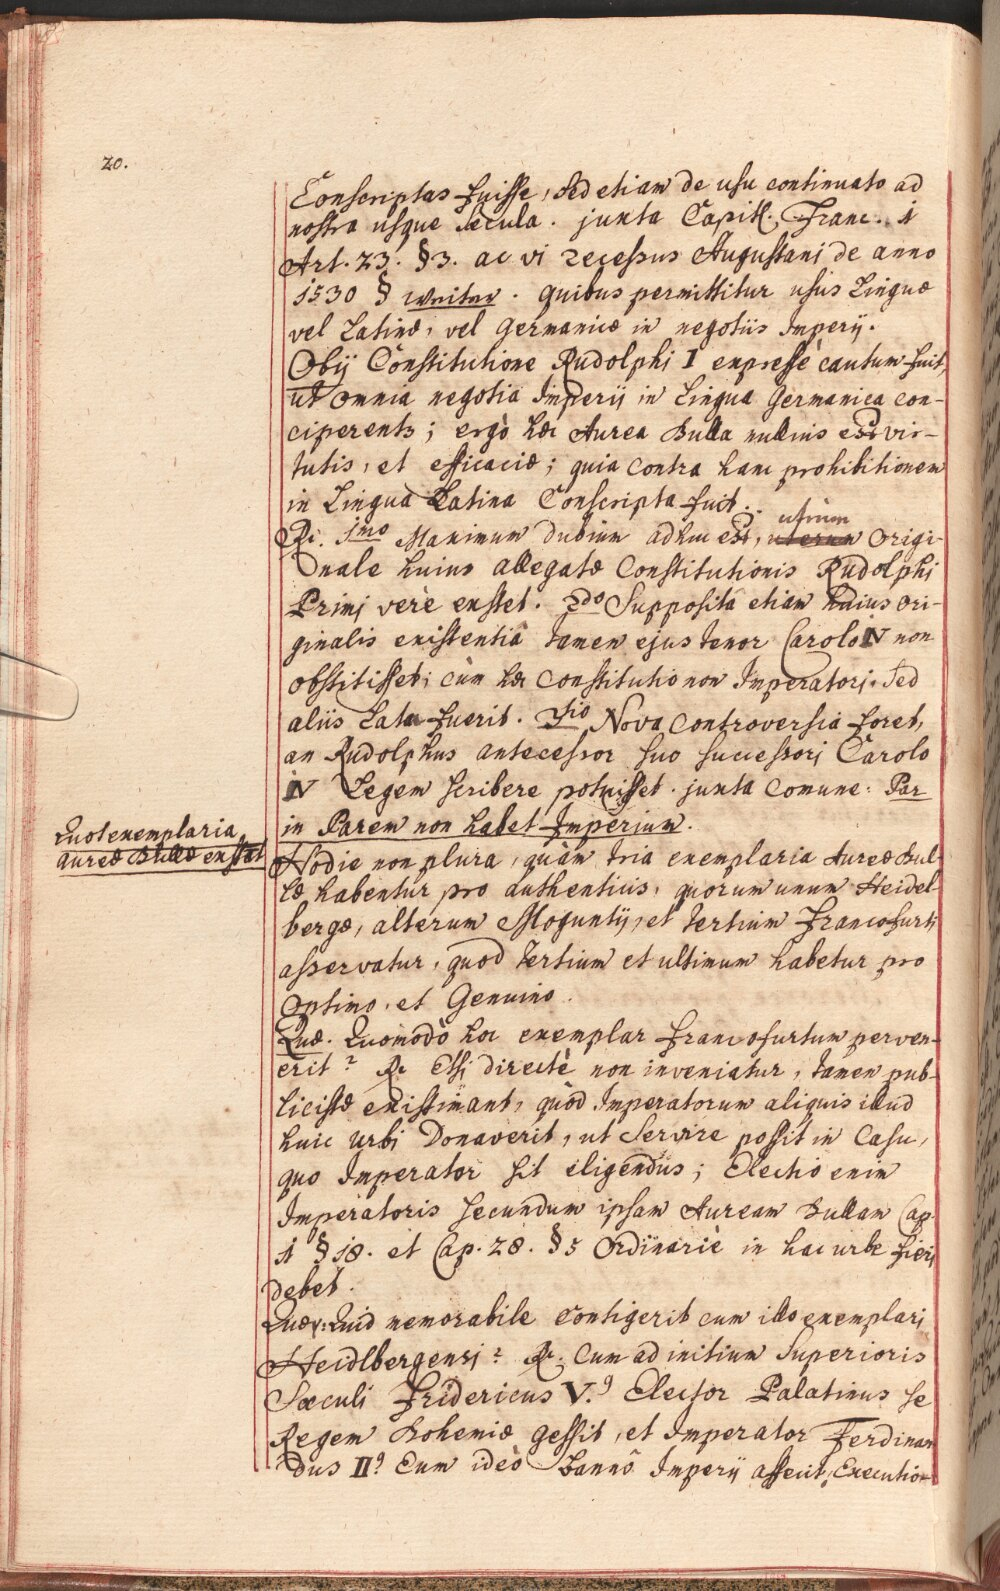 20.
Conscriptas fuisse, sed etiam de usu continuato ad
nostra usque sæcula. juxta Capitl. Franc. 1
Art. 23. §3. ac vi recessus Augustani de anno
1530 § weiter. quibus permittitur usus Linguæ
vel Latinæ, vel Germanicæ in negotiis Imperij.
Obij Constitutione Rudolphi I expressè cautum fuit,
ut omnia negotia Imperij in Lingua Germanica con-
ciperentr; ergò hæc Aurea Bulla nullius est vir-
tutis, et efficaciæ; quia contra hanc prohibitionem
in Linguâ Latina Conscripta fuit.
Rx. 1mo Maximum dubium adhuc est, uterum utrum origi-
nale huius allegatæ Constitutionis Rudolphi
Primi verè extet. 2do Suppositâ etiam huius ori-
ginalis existentiâ tamen ejus tenor Carolo IV non
obstitisset; cùm hæc constitutio non Imperatori. sed
aliis Lata fuerit. 3tio Nova controversia foret,
an Rudolphus antecessor suo successori Carolo
IV Legem scribere potuisset. juxta comune: Par
in Parem non habet Imperium.
Quot exemplaria
aureæ Bullæ extãt
Hodie non plura, quàm tria exemplaria Aureæ Bul-
læ habentur pro authenticis, quorum unum Heidel-
bergæ, alterum Moguntij, et tertium Francofurti
asservatur, quod tertium et ultimum habetur pro
optimo, et Genuino.
Quæ. Quomodò hoc exemplar Francofurtum perven-
erit? Rx Etsi directè non inveniatur, tamen pub-
licistæ existimant, quòd Imperatorum aliquis illud
huic urbi Donaverit, ut servire possit in Casu,
quo Imperator sit eligendus; Electio enim
Imperatoris secundum ipsam Auream Bullam Cap.
1 §18. et Cap. 28. §5 ordinariè in hac urbe fieri
debet.
Quær: Quid memorabile contigerit cum illo exemplari
Heidlbergensi? Rx. Cum ad initium Superioris
Sæculi Fridericus V.9 Elector Palatinus se
Regem Bohemiæ gessit, et Imperator Ferdinan
dus II9 Eum ideò Bannô Imperij affecit, Execution-